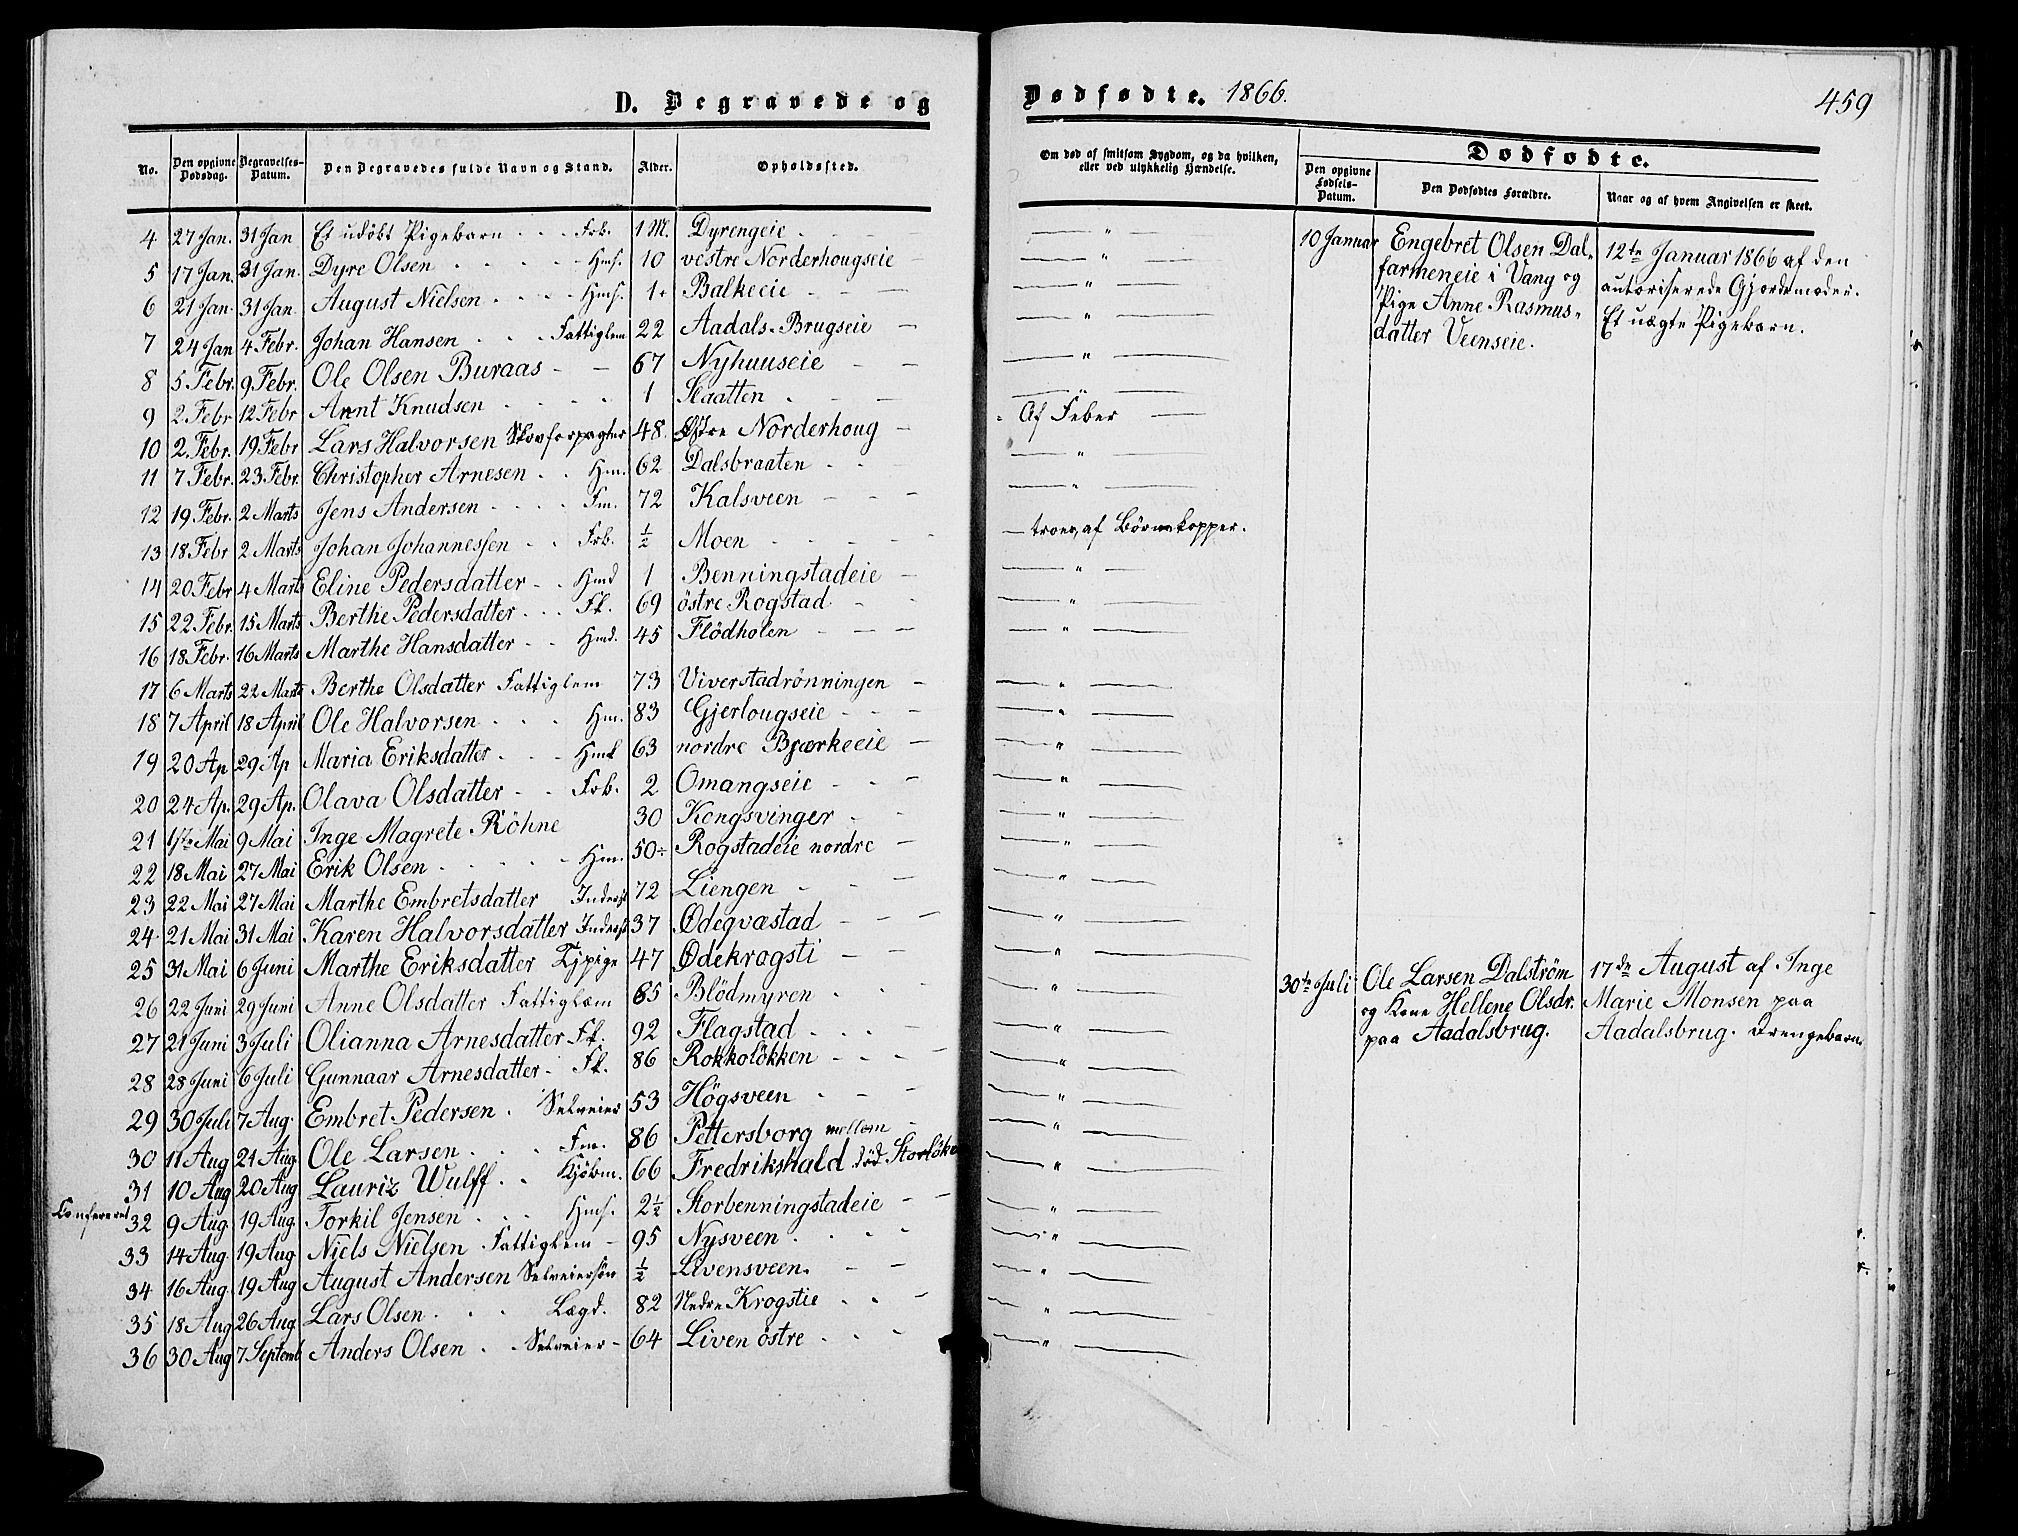 D. Begravede og
No. Den opgivne Dødsdag. Begravelses-Datum. Den Begravedes fulde Navn og Stand. Alder. Opholdssted.
4 27 Jan. 31 Jan Et udöbt Pigebarn - - - Frb. 1 M. Dyrengeie
5 17 Jan. 31 Jan. Dyre Olsen - - - Hms. 10 vestre Norderhougseie
6 21 Jan. 31 Jan. August Nielsen - - - Hms. 1 Balkeeie
7 24 Jan 4 Febr. Johan Hansen - - - Fattiglem 22 Aadals-Brugseie
8 5 Febr. 9 Febr. Ole Olsen Buraas - - 67 Nyhuuseie
9 2. Febr 12 Febr Arnt Knudsen - - - 1 Slaatten
10 2. Febr. 19 Febr Lars Halvorsen Skovforpagter 48. Østre Norderhoug
11 7 Febr. 23 Febr. Christopher Arnesen - - Hm. 62 Dalsbraaten
12 19 Febr. 2 Marts Jens Andersen - - - Fm. 72 Kalsveen
13 18 Febr 2 Marts Johan Johannessen - - Frb. ½ Moen
14 20 Febr 4 Marts Eline Pedersdatter - - Hmd 1 Benningstadeie
15 22 Febr. 15 Marts Berthe Pedersdatter - - - Fk. 69 östre Rogstad
16 18 Febr. 16 Marts Marthe Hansdatter - - Hmd. 45 Flödholen
17 6 Marts 22 Marts Berthe Olsdatter Fattiglem 73 Viverstadrönningen
18 7 April 18 April Ole Halvorsen - - - Hm. 83 Gjerlougseie
19 20 Ap 29 Ap Maria Eriksdatter - - - Hmk 63 nordre Bjærkeeie
20 24 Ap. 29 Ap. Olava Olsdatter - - Frb. 2 Omangseie
21 1ste Mai 9 Mai Inge Magrete Röhne 30 Kongsvinger
22 18 Mai 27 Mai Erik Olsen - - - Hm. 50 Rogstadeie nordre
23 22 Mai 27 Mai Marthe Embretsdatter Inderst 72 Liengen
24 21 Mai 31 Mai Karen Halvorsdatter Inderst 37 Ødegvæstad
25 31 Mai 6 Juni Marthe Eriksdatter Tjpige 47 Ødekrogsti
26 22 Juni 29 Juni Anne Olsdatter Fattiglem 85 Blödmyren
27 21 Juni 3 Juli Olianna Arnesdatter Fk. 92 Flagstad
28 28 Juni 6 Juli Gunnaar Arnesdatter - Fk. 86 Rokkolökken
29 30 Juli 7 Aug. Embret Pedersen - Selveier 53 Högsveen
30 11 Aug 21 Aug. Ole Larsen - - - Fm. 86 Pettersborg mellem
31 10 Aug 20 Aug Lauriz Wulff - - Kjöbm. 66 Fredrikshald död Storlöken
Confereret 32 9 Aug. 19 Aug Torkil Jensen - - - Hms. 2½ Storbenningstadeie
33 14 Aug. 19 Aug Niels Nielsen Fattiglem - 95 Nysveen
34 16 Aug. 19 Aug August Andersen Selveiersön ½ Livensveen
35 18 Aug 26 Aug Lars Olsen - - - Lægd. 82 Nedre Krogstie
36 30 Aug 7 Septemb Anders Olsen - - Selveier - 64 Liven östre
Dødfødte. 1866.
459
Om død af smitsom Sygdom, og da hvilken, eller ved ulykkelig Hændelse.
Dødfødte.
Den opgivne Fødsels-Datum. Den Dødfødtes Forældre. Naar og af hvem Angivelsen er skeet.
Af Feber
troer, af Börnekopper.
10 Januar Engebret Olsen Dal-
farmeneie i Vang og
Pige Anne Rasmus-
datter Veenseie.
12te Januar 1866 af den
autoriserede Gjordemoder.
Et uægte Pigebarn.
30te Juli Ole Larsen Dalström
og Kone Hellene Olsdr.
paa Aadalsbrug.
17de August af Inge
Marie Monsen paa
Aadalsbrug. Drengebarn.